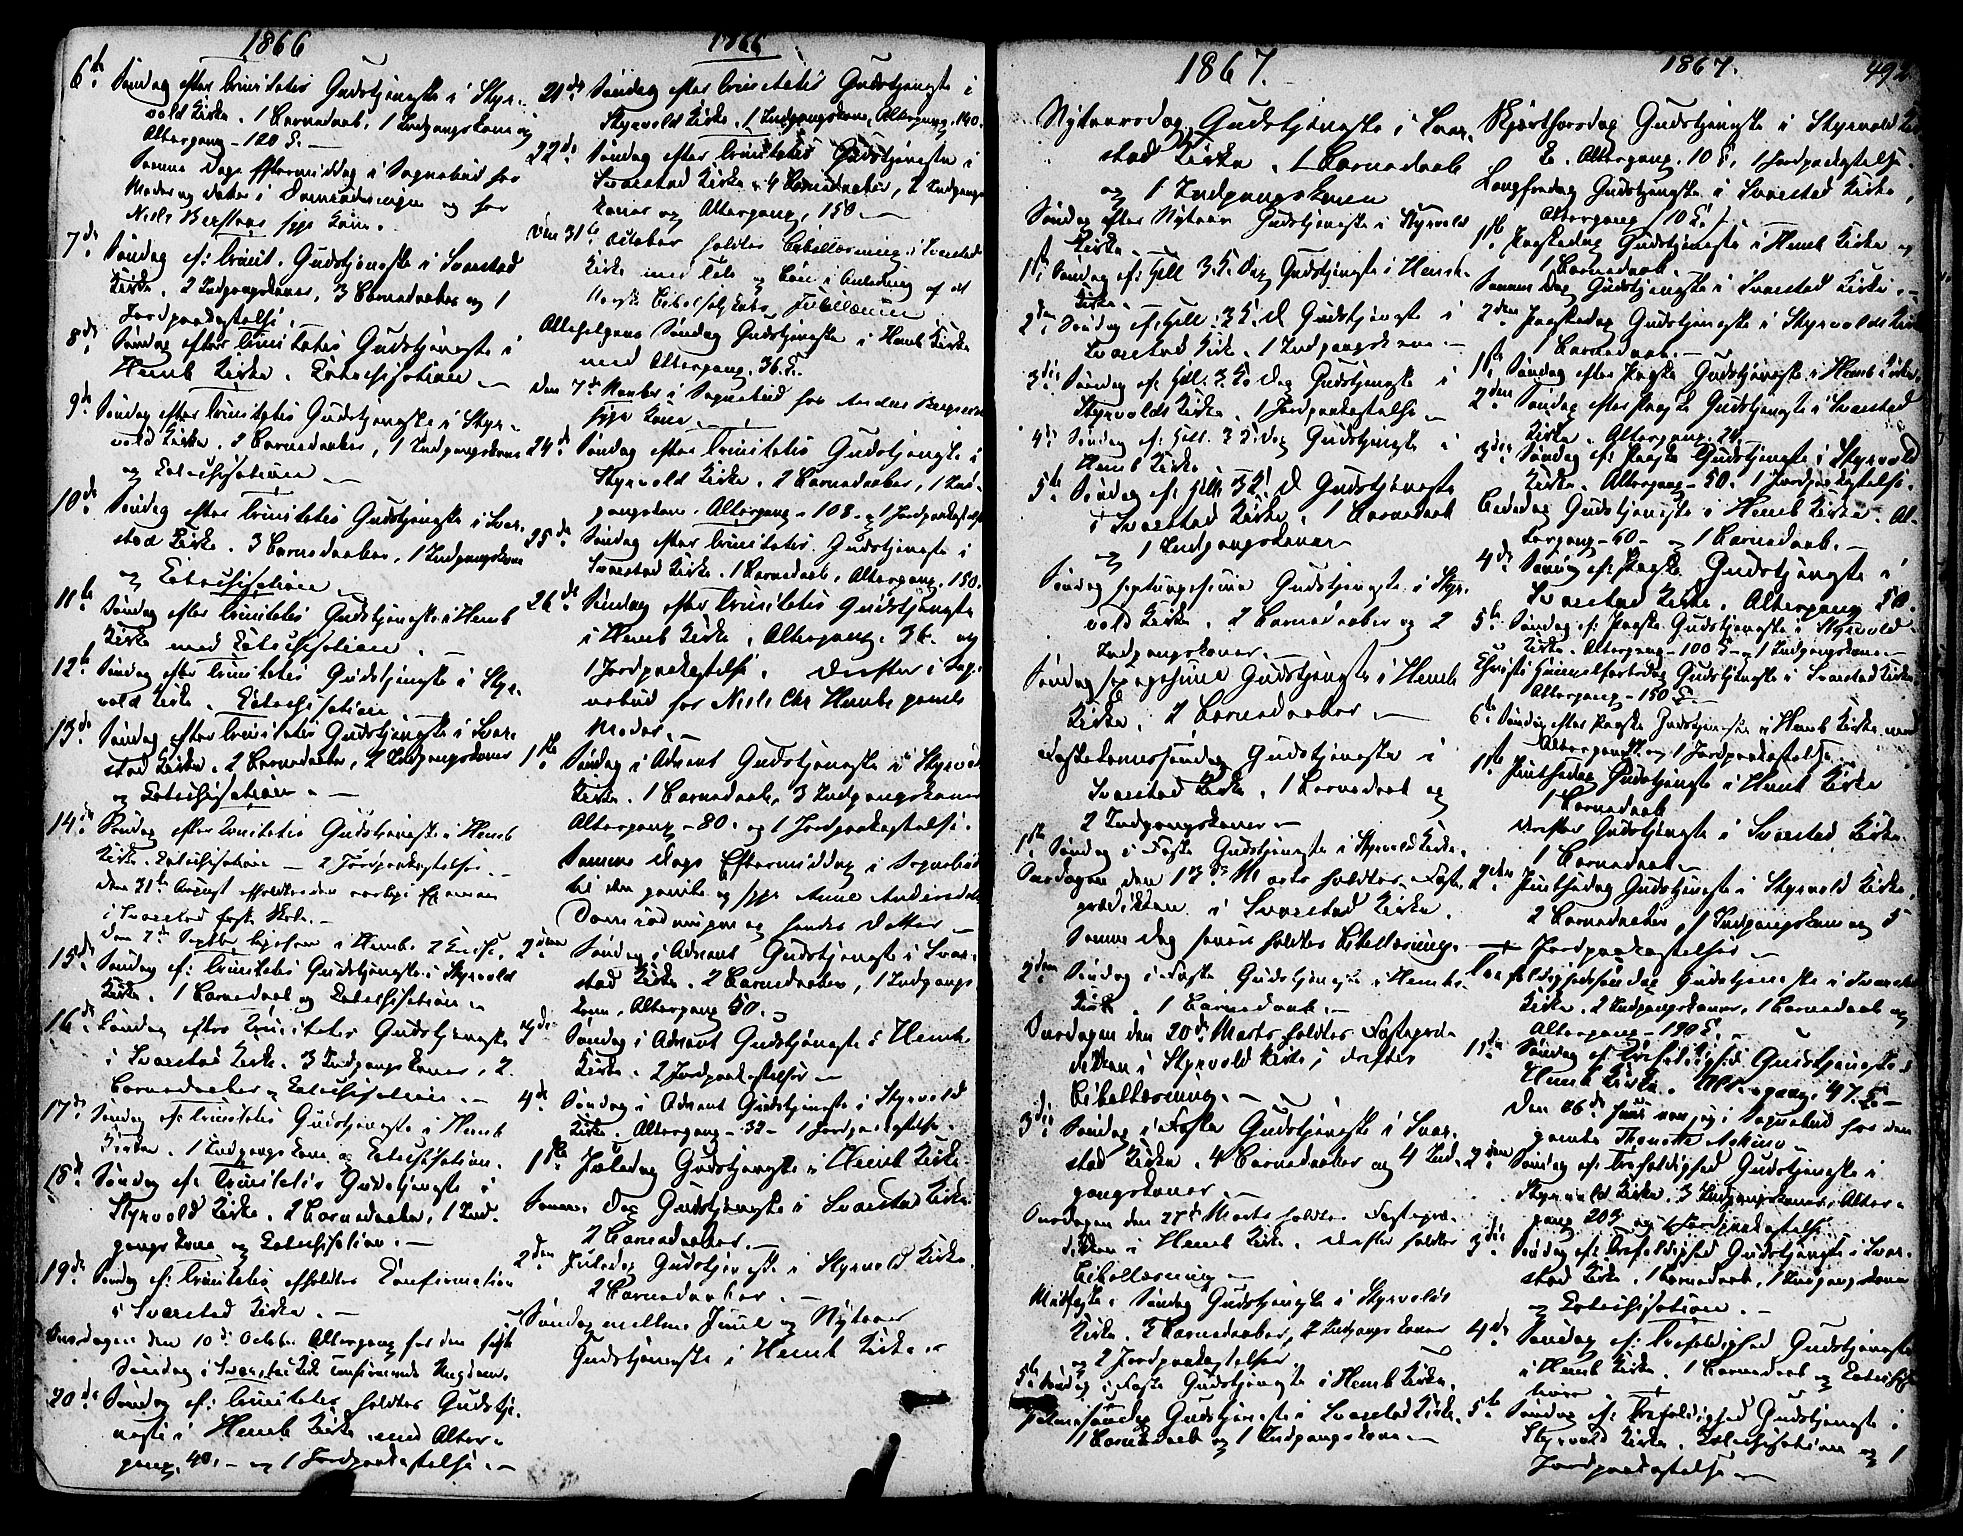 1866
6te Søndag efter Trinitatis Gudstjeneste i Styr-
vold Kirke. 1 Barnedaab, 1 Indgangskone og
Altergang - 120 S. -
Samme Dags Eftermiddag i Sognebud hos
Moder og Datter i og hos
Niels syge Kone.
7de Søndag ef: Trinit. Gudstjeneste i Svarstad
Kirke. 2 Indgangskoner, 3 Barnedaaber og 1
Jordpaakastelse.
8de Søndag efter Trinitatis Gudstjeneste i
Hemb Kirke. Catechisation -
9de Søndag efter Trinitatis Gudstjeneste i Styr-
vold Kirke. 2 Barnedaaber, 1 Indgangskone
og Catechisation -
10de Søndag efter Trinitatis Gudstjeneste i Svar-
stad Kirke. 3 Barnedaaber, 1 Indgangskone
og Catechisation -
11te Søndag efter Trinitatis Gudstjeneste i Hemb
Kirke med Catechisation.
12te Søndag efter Trinitatis Gudstjeneste i Styr-
vold Kirke. Catechisation -
13de Søndag efter Trinitatis Gudstjeneste i Svar-
stad Kirke. 2 Barnedaaber, 2 Indgangskoner
og Catechisation. -
14de Søndag efter Trinitatis Gudstjeneste i Hemb
Kirke. Catechisation - 2 Jordpaakastelser. -
Den 31te August afholdtes den aarlige Examen
i Svarstad faste Skole. -
Den 7de Septbr ligesom i Hemb. 2
15de Søndag ef: Trinitatis Gudstjeneste i Styrvold
Kirke. 1 Barnedaab og Catechisation. -
16de Søndag efter Trinitatis Gudstjeneste
i Svarstad Kirke. 3 Indgangskoner, 2
Barnedaaber og Catechisation. -
17de Søndag ef: Trinitatis Gudstjeneste i Hemb
Kirke. 1 Indgangskone og Catechisation.
18de Søndag ef: Trinitatis Gudstjeneste i
Styrvold Kirke. 2 Barnedaaber, 1 Ind-
gangskone og Catechisation. -
19de Søndag ef: Trinitatis afholdtes Confirmation
i Svarstad Kirke. -
Onsdagen den 10de Octobr Altergang for den sidste
Søndag i Svarstad Kirk confirmerede Ungdom.
20de Søndag ef: Trinitatis holdtes Gudstje-
neste i Hemb Kirke med Alter-
gang. 40. - og 1 Jordpaakastelse. -
1866
21de Søndag efter Trinitatis Gudstjeneste i
Styrvold Kirke. 1 Indgangskone, Altergang. 140.
22de Søndag efter Trinitatis Gudstjeneste i
Svarstad Kirke. 4 Barnedaaber, 2 Indgangs-
koner og Altergang. 150. -
Den 31te October holdtes Bibellæsning i Svarstad
Kirke med Tale og Bøn i Anledning af det
Norske Bibelselskabs Jubilæum
Allehelgens Søndag Gudstjeneste i Hemb Kirke
med Altergang. 36. S.
Den 7de Novbr i Sognebud hos Anders
syge Kone.
24de Søndag efter Trinitatis Gudstjeneste i
Styrvold Kirke. 2 Barnedaaber, 1 Ind-
gangskone. Altergang - 108. og 1 Jordpaakastelse
25de Søndag efter Trinitatis Gudstjeneste i
Svarstad Kirke. 1 Barnedaab, Altergang. 150.
26de Søndag efter Trinitatis Gudstjeneste
i Hemb Kirke, Altergang. 36. og
1 Jordpaakastelse. Derefter i Sog-
nebud for Niels Chr Hembs gamle
Moder. -
1ste Søndag i Advent Gudstjeneste i Styrvold
Kirke. 1 Barnedaab, 3 Indgangskoner
Altergang - 80. og 1 Jordpaakastelse.
Samme Dags Eftermiddag i Sognebud
til den gamle og syge Anne Andersdatter
og hendes Datter -
2den Søndag i Advent Gudstjeneste i Svar-
stad Kirke. 2 Barnedaaber, 1 Indgangs-
kone, Altergang 50. -
3die Søndag i Advent Gudstjeneste i Hemb
Kirke. 2 Jordpaakastelser -
4de Søndag i Advent Gudstjeneste i Styrvold
Kirke. Altergang - 32 - 1 Jordpaakastelse. -
1ste Juledag Gudstjeneste i Hemb Kirke.
Samme Dag Gudstjeneste i Svarstad Kirke
2 Barnedaaber. -
2den Juledag Gudstjeneste i Styrvold Kirke.
2 Barnedaaber. -
Søndag mellem Juul og Nytaar
Gudstjeneste i Hemb Kirke. -
1867.
Nytaarsdag Gudstjeneste i Svar-
stad Kirke. 1 Barnedaab
og 1 Indgangskone
Søndag efter Nytaar Gudstjeneste i Styrvold
Kirke -
1ste Søndag ef: Hell. 3 K. Dag Gudstjeneste i Hemb
Kirke.
2den Søndag ef: Hell. 3 K. D Gudstjeneste i
Svarstad Kirk. 1 Indgangskone -
3die Søndag ef: Hell. 3 K. Dag Gudstjeneste i
Styrvolds Kirke. 1 Jordpaakastelse -
4de Søndag ef: Hell. 3 K. Dag Gudstjeneste i
Hemb Kirke -
5te Søndag ef: Hell. 3 K. D Gudstjeneste
i Svarstad Kirke. 1 Barnedaab
og 1 Indgangskone -
Søndag septuagesima Gudstjeneste i Styr-
vold Kirke. 2 Barnedaaber og 2
Indgangskoner. -
Søndag sexagesima Gudstjeneste i Hemb
Kirke. 2 Barnedaaber. -
Fastelavnssøndag Gudstjeneste i
Svarstad Kirke. 1 Barnedaab og
2 Indgangskoner. -
1ste Søndag i Faste Gudstjeneste i Styrvold Kirke.
Onsdagen den 13de Marts holdtes Faste-
prædikken i Svarstad Kirke.
Samme Dag holdtes Bibellæsning.
2den Søndag i Faste Gudstjeneste i Hembs
Kirk. 1 Barnedaab. -
Onsdagen den 20de Marts holdtes Fastepræ-
dikken i Styrvold Kirke; derefter
Bibellæsning. -
3die Søndag i Faste Gudstjeneste i Svar-
stad Kirke. 4 Barnedaaber og 4 Ind-
gangskoner. -
Onsdagen den 27de Marts holdtes Fastepræ-
dikken i Hemb Kirke. Derefter holdtes
Bibellæsning -
Midfaste Søndag Gudstjeneste i Styrvolds
Kirke. 3 Barnedaaber, 2 Indgangskoner
og 2 Jordpaakastelser.
5te Søndag i Faste Gudstjeneste i Hemb Kirke.
Palmesøndag Gudstjeneste i Svarstad Kirke.
1 Barnedaab og 1 Indgangskone. -
1867.
492
Skjærthorsdag Gudstjeneste i Styrvold Kir-
ke. Altergang. 10 S., 1 Jordpaakastelse.
Langfredag Gudstjeneste i Svarstad Kirke,
Altergang 110 S. -
1ste Paaskedag Gudstjeneste i Hemb Kirke og
1 Barnedaab. -
Samme Dag Gudstjeneste i Svarstad Kirke. -
2den Paaskedag Gudstjeneste i Styrvolds Kirke
1 Barnedaab. -
1ste Søndag efter Paaske Gudstjeneste i Hemb Kirke.
2den Søndag efter Paaske Gudstjeneste i Svarstad
Kirke. Altergang. 70.
3die Søndag ef: Paaske Gudstjeneste i Styrvold
Kirke. Altergang - 50. 1 Jordpaakastelse.
Bededag Gudstjeneste i Hemb Kirke. Al-
tergang - 60 - og 1 Barnedaab. -
4de Søndag ef: Paaske Gudstjeneste i
Svarstad Kirke. Altergang 50.
5te Søndag ef: Paaske Gudstjeneste i Styrvold
Kirke. Altergang - 100 S - og 1 Indgangskone. -
Christi Himmelfartsdag Gudstjeneste i Svarstad Kirke
Altergang - 150 S. -
6te Søndag efter Paaske Gudstjeneste i Hemb Kirke med
Altergang og 1 Jordpaakastelse. -
1ste Pintsedag Gudstjeneste i Hemb Kirke
1 Barnedaab
Derefter Gudstjeneste i Svarstad Kirke.
1 Barnedaab -
2den Pintsedag Gudstjeneste i Styrvold Kirke.
2 Barnedaaber, 1 Indgangskone og 5
Jordpaakastelser -
Trefoldighedssøndag Gudstjeneste i Svarstad
Kirke. 2 Indgangskoner, 1 Barnedaab og
Altergang - 190 S. -
1ste Søndag ef: Trefoldighed Gudstjeneste i
Hemb Kirke. Altergang. 47. S. -
Den 26de Juni var jeg i Sognebud hos den
gamle
2den Søndag ef: Trefoldighed Gudstjeneste i
Styrvold Kirke. 3 Indgangskoner, Alter-
gang 203 og 1 Jordpaakastelse.
3die Søndag ef: Trefoldighed Gudstjeneste i Svar-
stad Kirke. 1 Barnedaab, 1 Indgangskone
og Catechisation. -
4de Søndag ef: Trefoldighed Gudstjeneste
i Hemb Kirke. 1 Barnedaab og Catechisa-
tion
5te Søndag ef: Trefoldighed Gudstjeneste i
Styrvold Kirke. Catechisation og 1
Jordpaakastelse -